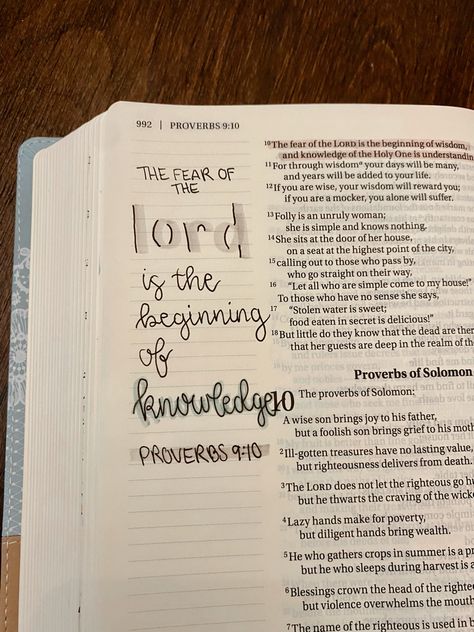 992 | PROVERBS 9:10
THE FEAR OF
THE
lord
is the
beginning
of
knowledge
PROVERBS 9:10
10 The fear of the LORD is the beginning of wisdom,
and knowledge of the Holy One is
11 For through wisdom your days will be many,
and years will be added to your life.
12 If you are wise, your wisdom will reward you;
if you are a mocker, you alone will suffer.
13 Folly is an unruly woman;
she is simple and knows nothing.
14 She sits at the door of her house,
on a seat at the highest point of the city,
15 calling out to those who pass by,
who go straight on their way,
16 “Let all who are simple come to my house!”
To those who have no sense she says,
17 “Stolen water is sweet;
food eaten in secret is delicious!”
18 But little do they know that the dead are
that her guests are deep in the realm of
Proverbs of Solomon
10
The proverbs of Solomon:
A wise son brings joy to his father,
but a foolish son brings grief to his
2 Ill-gotten treasures have no lasting value,
but righteousness delivers from death.
3 The LORD does not let the righteous go
but he thwarts the craving of the
4 Lazy hands make for poverty,
but diligent hands bring wealth.
5 He who gathers crops in summer is a
but he who sleeps during harvest is
6 Blessings crown the head of the
but violence overwhelms the
7 The name of the righteous is used in